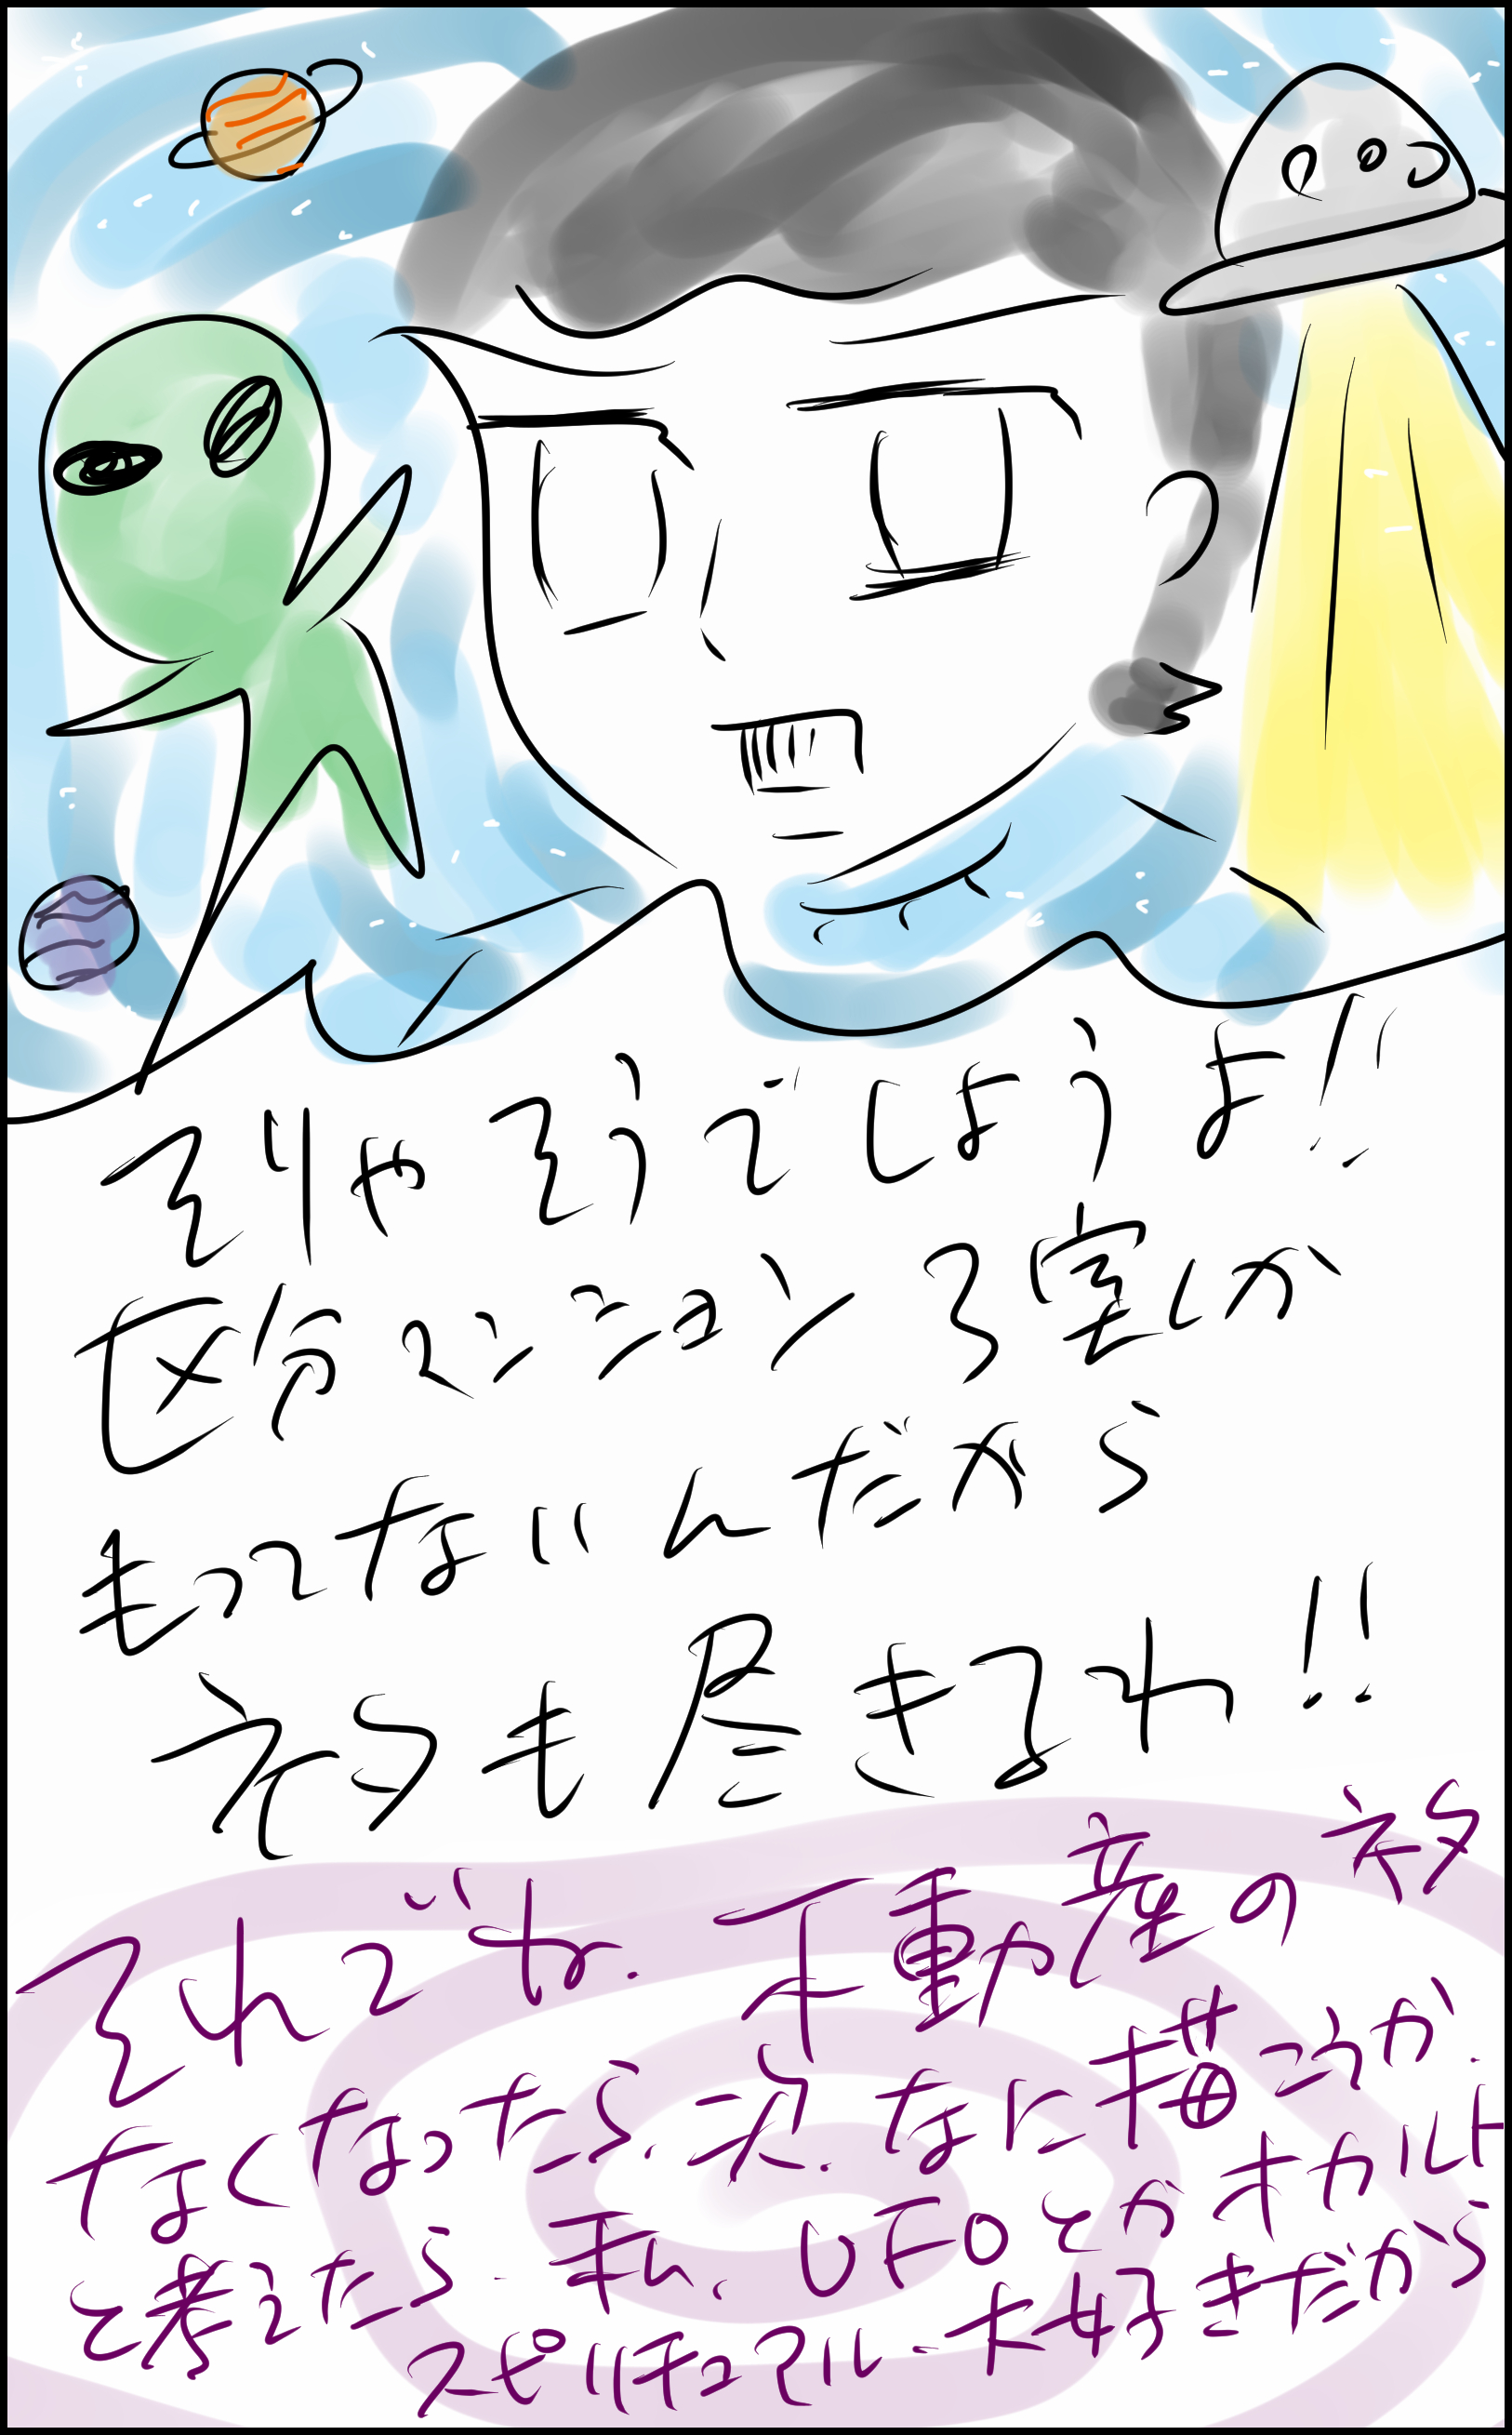 そりゃそうでしょうよ!!
区分マンション3室しか
もってないんだから
ネタも尽きるわ!!
それでね.不動産のネタ
なくなったら.次.なに描こうか.
て考えたら.私、UFOとかオカルト
スピリチュアル大好きだから